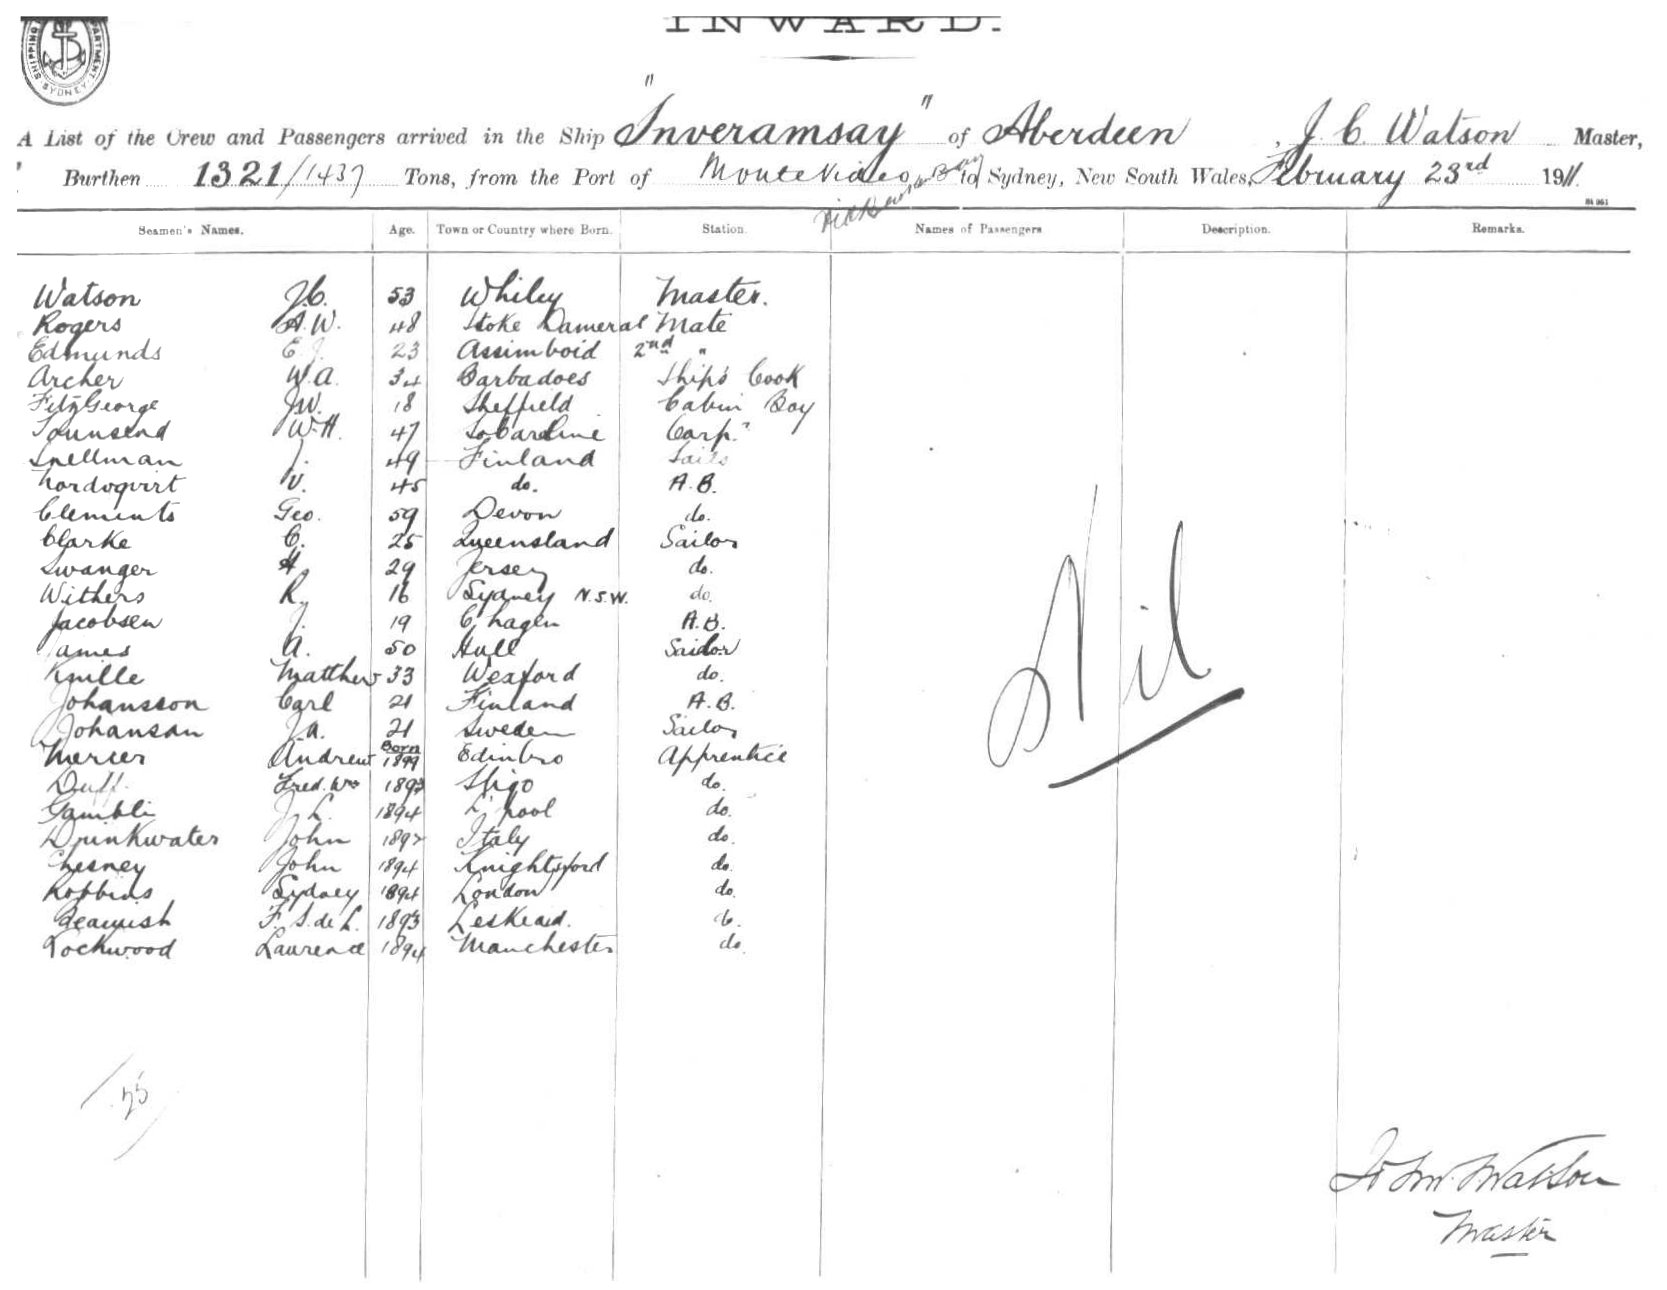 INWARD.
SHIPPING DEPARTMENT SYDNEY
A List of the Crew and Passengers arrived in the Ship "Inveramsay" of Aberdeen, J. C. Watson Master,
Burthen 1321/1437 Tons, from the Port of Monte Video to Sydney, New South Wales, February 23rd 1911.
Seamen's Names. Age. Town or Country where Born. Station. Names of Passengers Description. Remarks.
Watson J.C. 53 Whiley Master.
Rogers A.W. 48 Stoke Dameral Mate
Edmunds E.J. 23 Assimboid 2nd "
Archer W.A. 34 Barbadoes Ship's Cook
FitzGeorge J.W. 18 Sheffield Cabin Boy
Townsend W.H. 47 Carp."
Snellman J. 49 Finland Sails
Nordvqvirt V. 45 do. A.B.
Clements Geo. 59 Devon do.
Clarke C. 25 Queensland Sailor
Swanger H. 29 Jersey do.
Withers R. 16 Sydney N.S.W. do.
Jacobsen J. 19 C'hagen A.B.
James A. 50 Hull Sailor
Knille Matthew 33 Wexford do.
Johansson Carl 21 Finland A.B.
Johansan J.A. 21 Sweden Sailor
Mercer Andrew Born 1899 Edinbro Apprentice
Duff. Fred. Wm 1893 Sligo do.
Gambli J. L. 1894 L'pool do.
Drinkwater John 189 Italy do.
Chesney John 1894 Knightsford do.
Robbins Sydney 1894 London do.
Beamish F. S. de L. 1893 Leskeard. do.
Lockwood Laurence 1894 Manchester do.
Nil
25
Jno Watson
Master